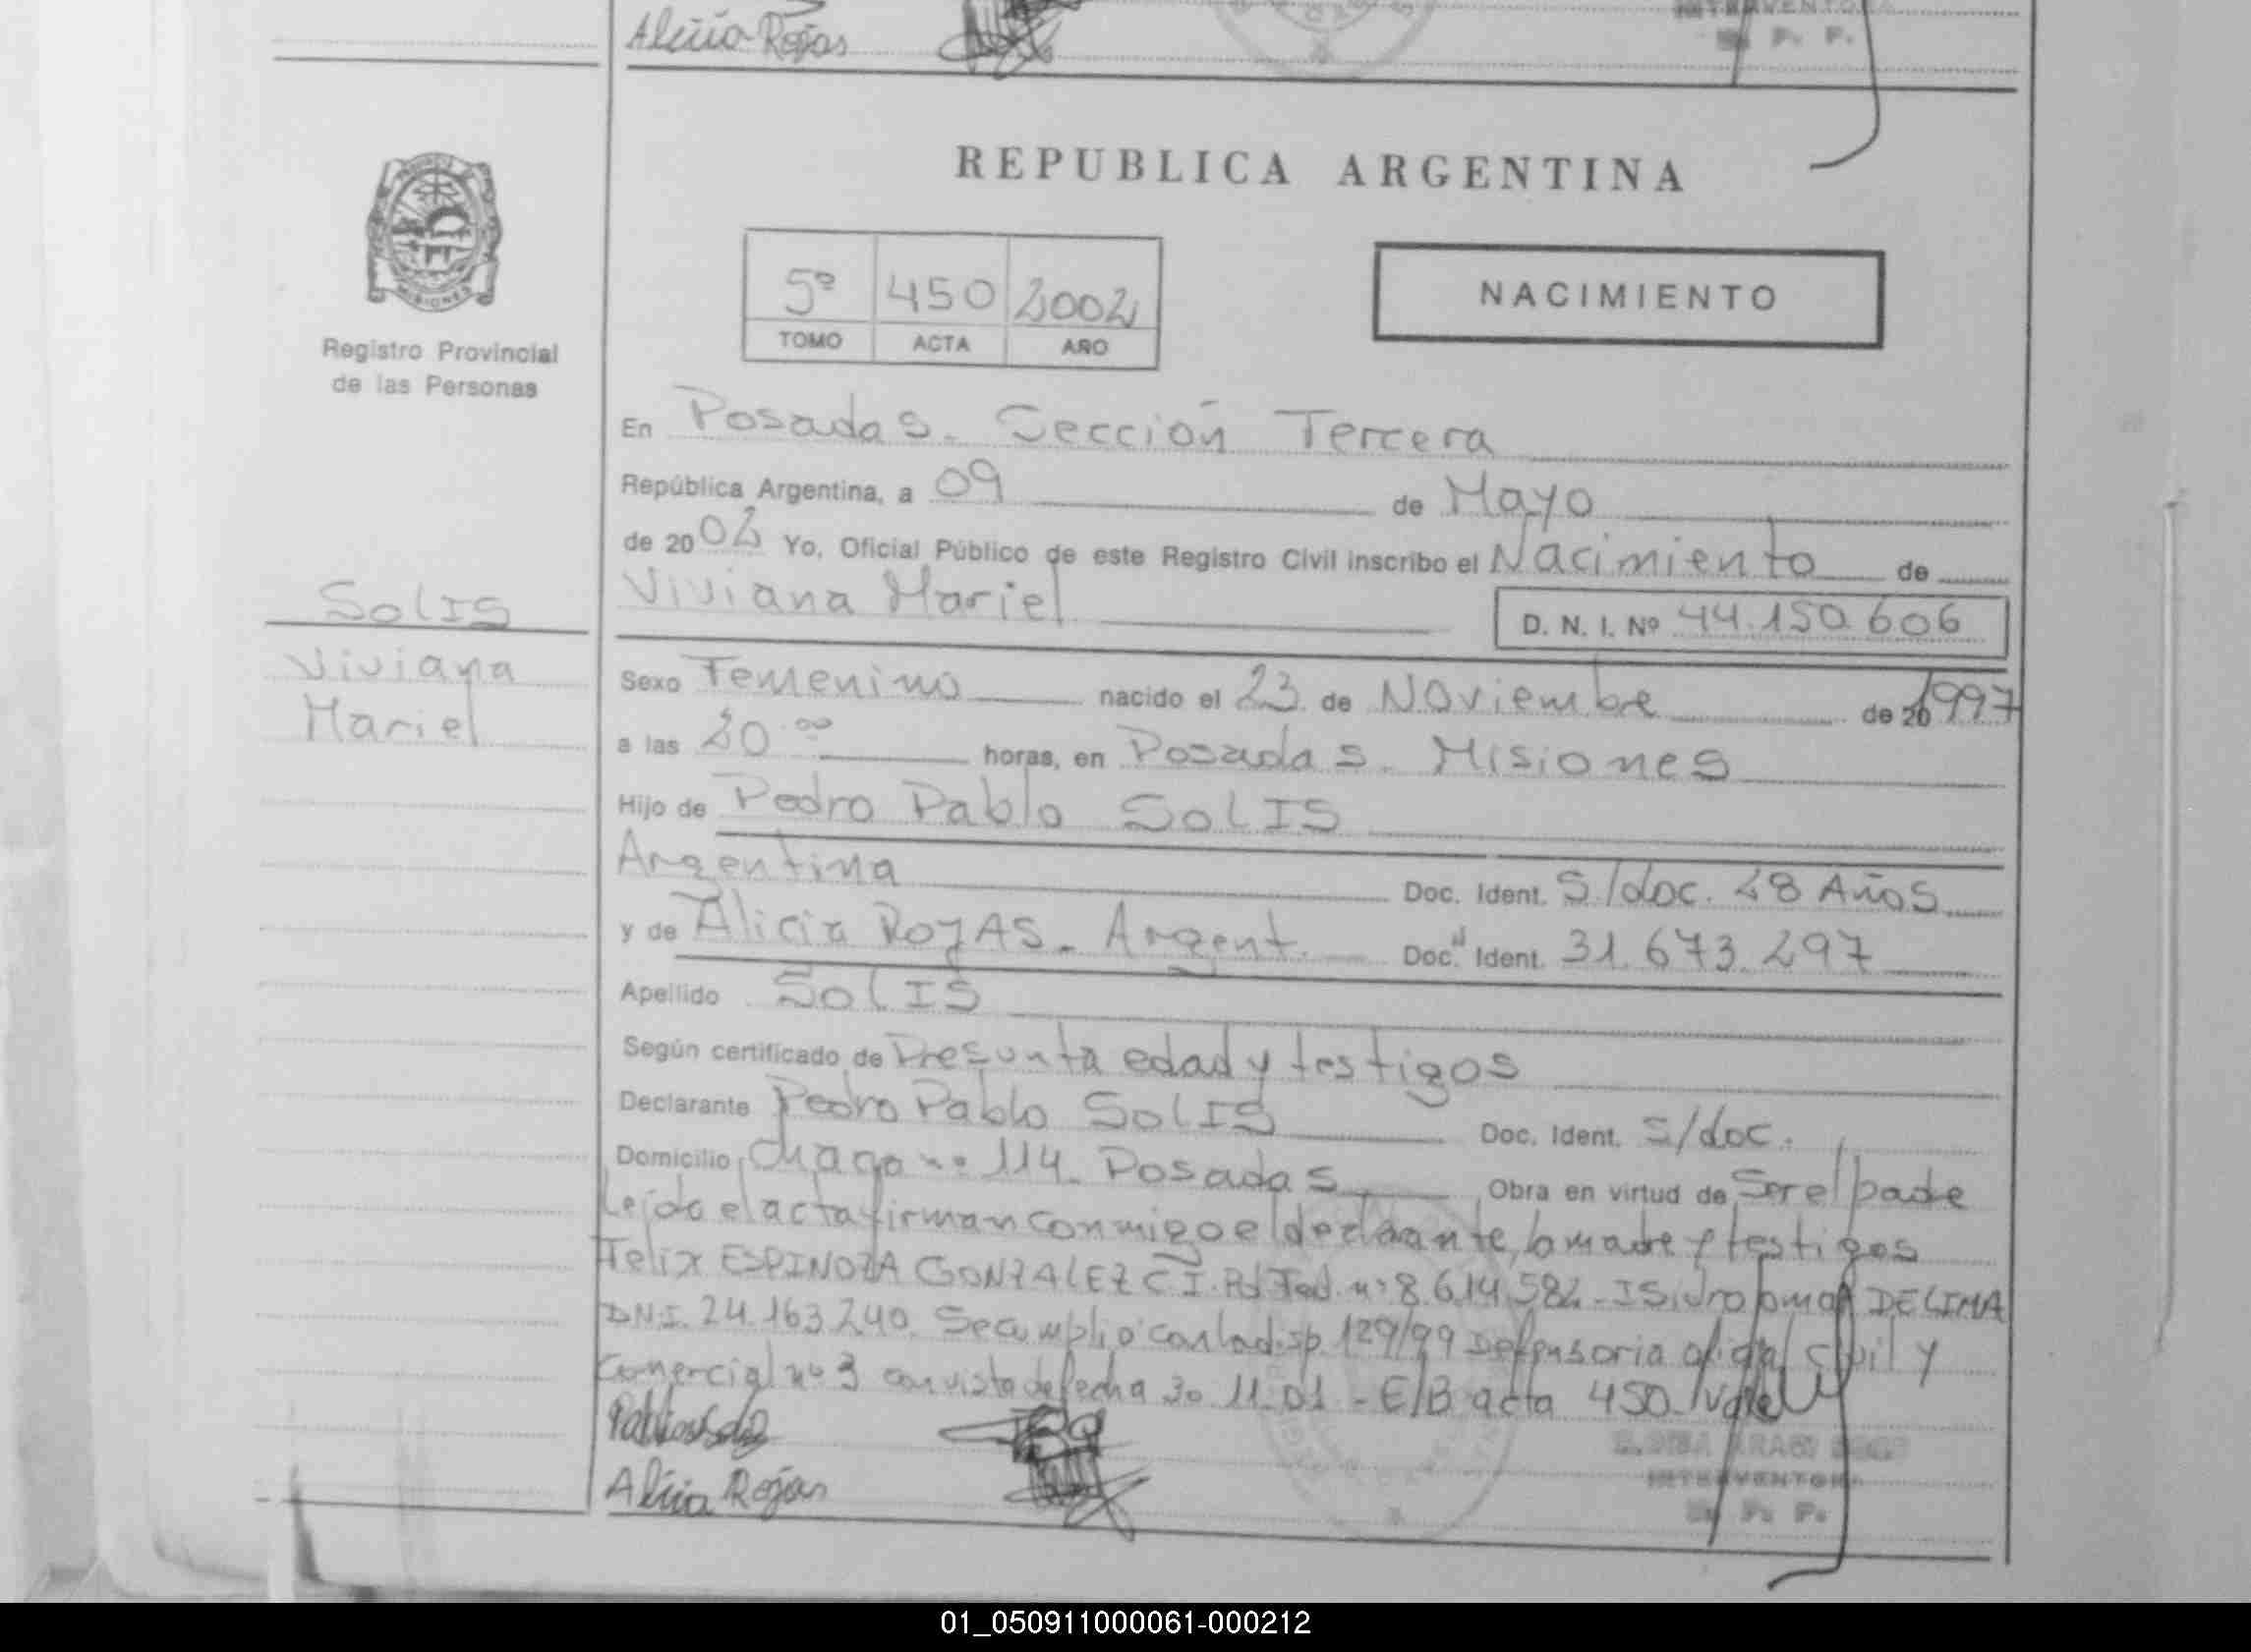 Alicia Rojas
INTERVENTORA
P. F.
REPUBLICA ARGENTINA
MISIONES
Registro Provincial
de las Personas
5º 450 2002
TOMO ACTA AÑO
NACIMIENTO
En Posadas. Sección Tercera
República Argentina, a 09 de Mayo
de 2002 Yo, Oficial Público de este Registro Civil inscribo el Nacimiento de
Viviana Mariel
D. N. I. Nº 44.150.606
SOLIS
Viviana
Mariel
Sexo Femenino nacido el 23 de Noviembre de 20 1997
a las 20.00 horas, en Posadas. Misiones
Hijo de Pedro Pablo SOLIS
Argentina Doc. Ident. S/doc. 28 Años
y de Alicia ROJAS. Argent. Doc. Ident. 31.673.297
Apellido SOLIS
Según certificado de Presunta edad y testigos
Declarante Pedro Pablo SOLIS Doc. Ident. S/doc.
Domicilio nº 114. Posadas Obra en virtud de Ser el padre
Leído el acta firman conmigo el declarante, la madre y testigos
Felix ESPINOZA GONZALEZ C.I. Pol Fed. nº 8.614.582 - Isidro Omar DE LIMA
DNI. 24.163.240. Se cumplio con la disp. 129/99 Defensoria oficial civil y
Comercial nº 3 con vista de fecha 30.11.01 - E/B acta 450. Vale
Alicia Rojas
INTERVENTORA
P. F.
01_050911000061-000212